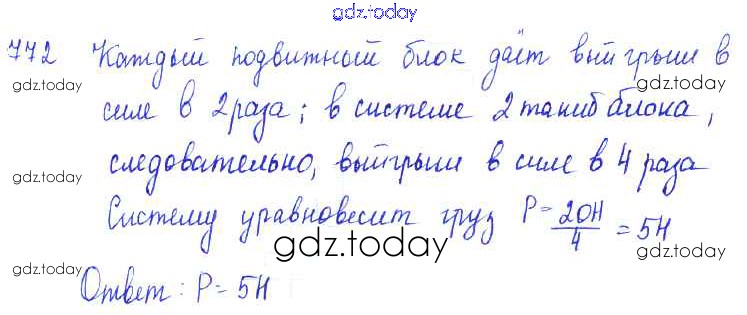 gdz.today
772 Каждый подвижный блок даёт выигрыш в
gdz.today
gdz.today
силе в 2 раза; в системе 2 таких блока,
gdz.today
следовательно, выигрыш в силе в 4 раза
gdz.today
Систему уравновесит груз P = 20Н/4 = 5Н
gdz.today
gdz.today
gdz.today
Ответ: P = 5Н